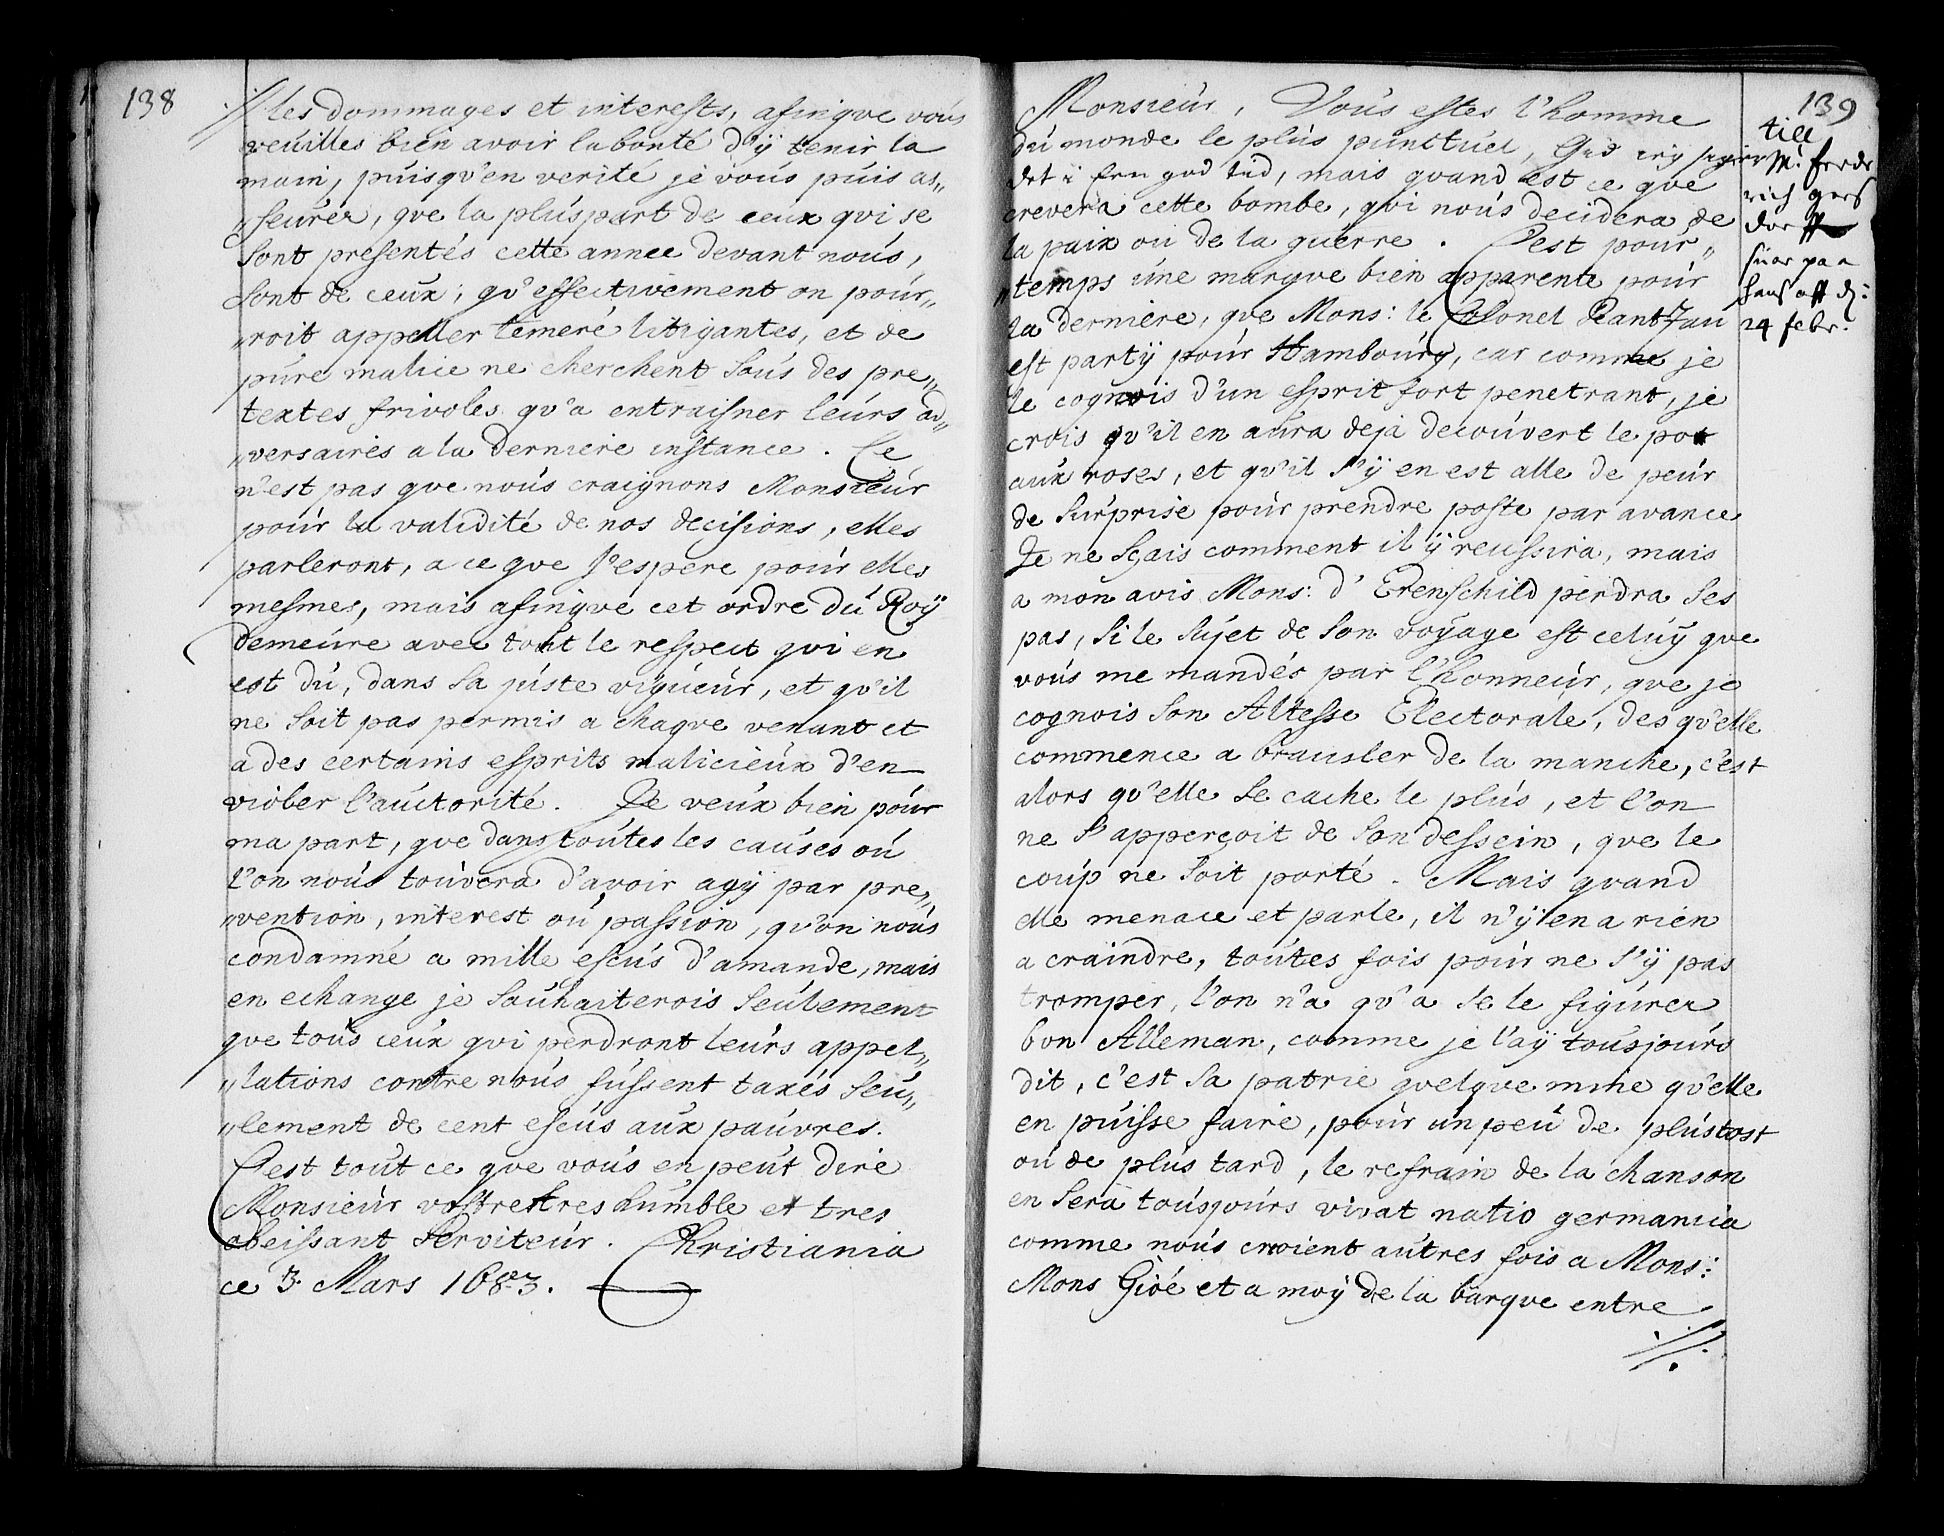 138
les dommages et interests, afinqve vous
veuilles bien avoir la bonté d'ÿ tenir la
main, puisqv'en verité je vous puis as„
„seurer, qve la pluspart de ceux qvi se
sont presentés cette annee devant nous,
sont de ceux, qv'effectivement on pour„
„roit appeller temeré litigantes, et de
pure malice ne cherchent sous des pre„
textes frivoles qv'a entraisner leurs ad„
„versaires a la derniere instance. Ce
n'est pas qve nous craignons Monsieur
pour la validité de nos decisions, elles
parleront, a ce qve j'espere pour elles
mesmes, mais afinqve cet ordre du Roÿ
demeure avec tout le respect qvi en
est du, dans sa juste vigueur, et qv'il
ne soit pas permis a chaqve venant et
a des certains esprits malicieux d'en
violer l'auctorité. Je veux bien pour
ma part, qve dans toutes les causes ou
l'on nous touvera d'avoir agÿ par pre„
„vention, interest ou passion, qv'on nous
condamne a mille escus d'amande, mais
en echange je souhaiterois seulement
qve tous ceux qvi perdront leurs appel„
„lations contre nous fussent taxés seu„
„lement de cent escus aux pauvres.
C'est tout ce qve vous en peut dire
Monsieur vostre tres humble et tres
obeissant serviteur. Christiania
ce 3 Mars 1683.
139
till
Mr. ferde
rich gers
dorff
suar paa
hans aff d:
24 febr.
Monsieur, Vous estes l'homme
du monde le plus punctuel, Gud
det i een god tid, mais qvand est ce qve
crevera cette bombe, qvi nous decidera de
la paix ou de la guerre. C'est pour„
„temps une marqve bien apparente pour
la derniere, qve Mons: le Colonel Rantzau
est partÿ pour Hambourg, car comme je
le cognois d'un esprit fort penetrant, je
crois qv'il en aura deja decouvert le pot
aux roses, et qv'il s'ÿ en est alle de peur
de surprise pour prendre poste par avance
Je ne sçais comment il ÿ reussira, mais
a mon avis Mons: d'Erenschild perdra ses
pas, si le sujet de son voÿage est celuÿ qve
vous me mandés par l'honneur, qve je
cognois son Altesse Electorale, des qv'elle
commence a bransler de la manche, c'est
alors qv'elle se cache le plus, et l'on
ne s'apperçoit de son dessein, qve le
coup ne soit porté. Mais qvand
elle menace et parle, il n'ÿ en a rien
a craindre, toutes fois pour ne s'ÿ pas
tromper, l'on n'a qv'a se le figurer
bon Alleman, comme je l'aÿ tousjours
dit, c'est sa patrie qvelqve mine qv'elle
en puisse faire, pour un peu de plustost
ou de plus tard, le refrain de la chanson
en sera tousjours vivat natio germanica
comme nous croient autres fois a Mons:
Mons Giöé et a moÿ de la barqve entre